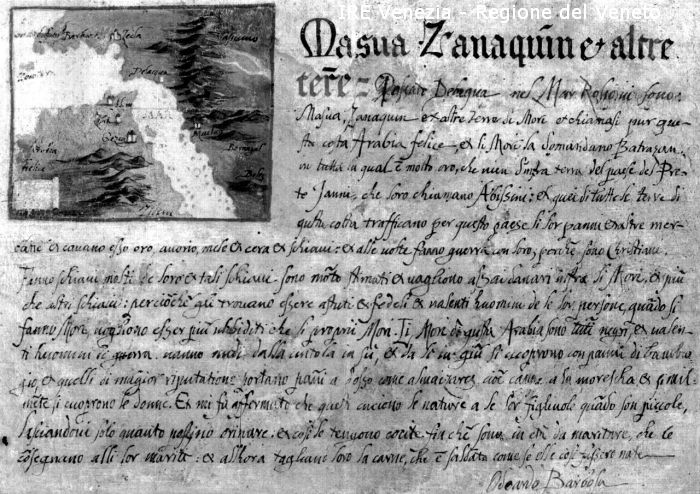 IRE Venezia - Regione del Veneto
Masua Zanaquin et altre
terre =
Passato Delaqua nel Mar Rosso sono
Masua, Zanaquin et altre terre di Mori et chiamasi pur que
sta costa Arabia felice, et li Mori la domandano
in tutta la qual è molto oro, che vien terra del paese del Pre
te Janni, che loro chiamano Abissini: et quei di tutte le terre di
questa costa trafficano per questo paese li lor panni et altre mer
catie et cavano esso oro, avorio, mele et cera et schiavi: et alle volte fanno guerra con loro, perche sono Christiani.
Fanno schiavi molti de loro et tali schiavi sono molto stimati et vagliono assai danari infra li Mori, et più
che altri schiavi: percioche gli trovano essere astuti et fedeli et valenti huomini de le lor persone, quando si
fanno Mori, vogliono esser più ubbiditi che li proprii Mori. Ti Mori di questa Arabia sono tutti negri et valen
ti huomini di guerra. vanno nudi dalla cintola in su, et da lì in giù si cuoprono con panni di bamba
gio, et quelli di maggior riputatione portano panni a dosso come almaizares, cioè a la moresca et simil
mente si cuoprono le donne. Et mi fu affermato che questi cuciono le nature a le lor figliuole quando son piccole,
lasciandovi solo quanto possino orinare. et così le tengono cucite fin che sono in età da maritare, che le
consegnano alli lor mariti: et allhora tagliano loro la carne, che è saldata come se elle così fussero nate
Odoardo Barbosa